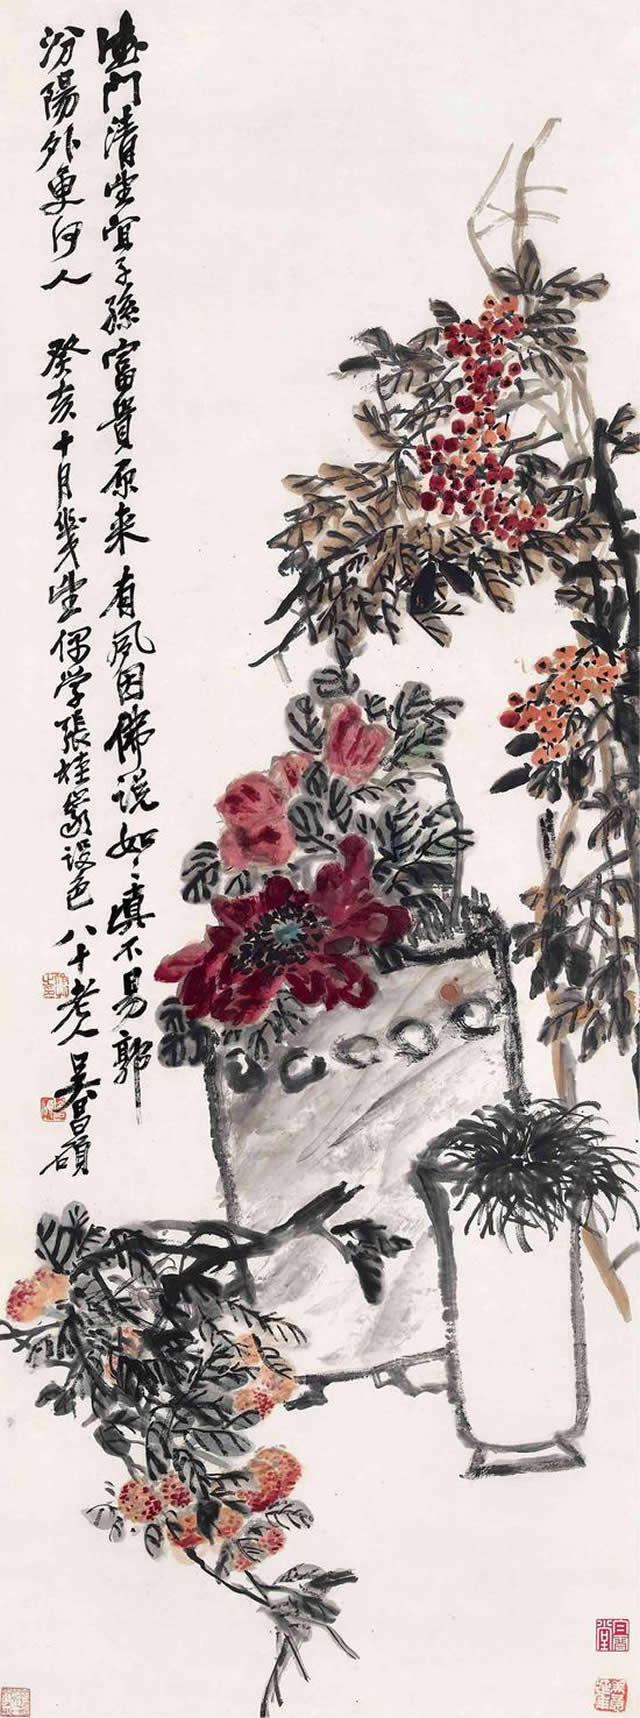 德門清望宜子孫富貴原来有夙因佛說如〻真不易郭
汾陽外更何人 癸亥十月幾望偶学張桂巖設色 八十老人吳昌碩